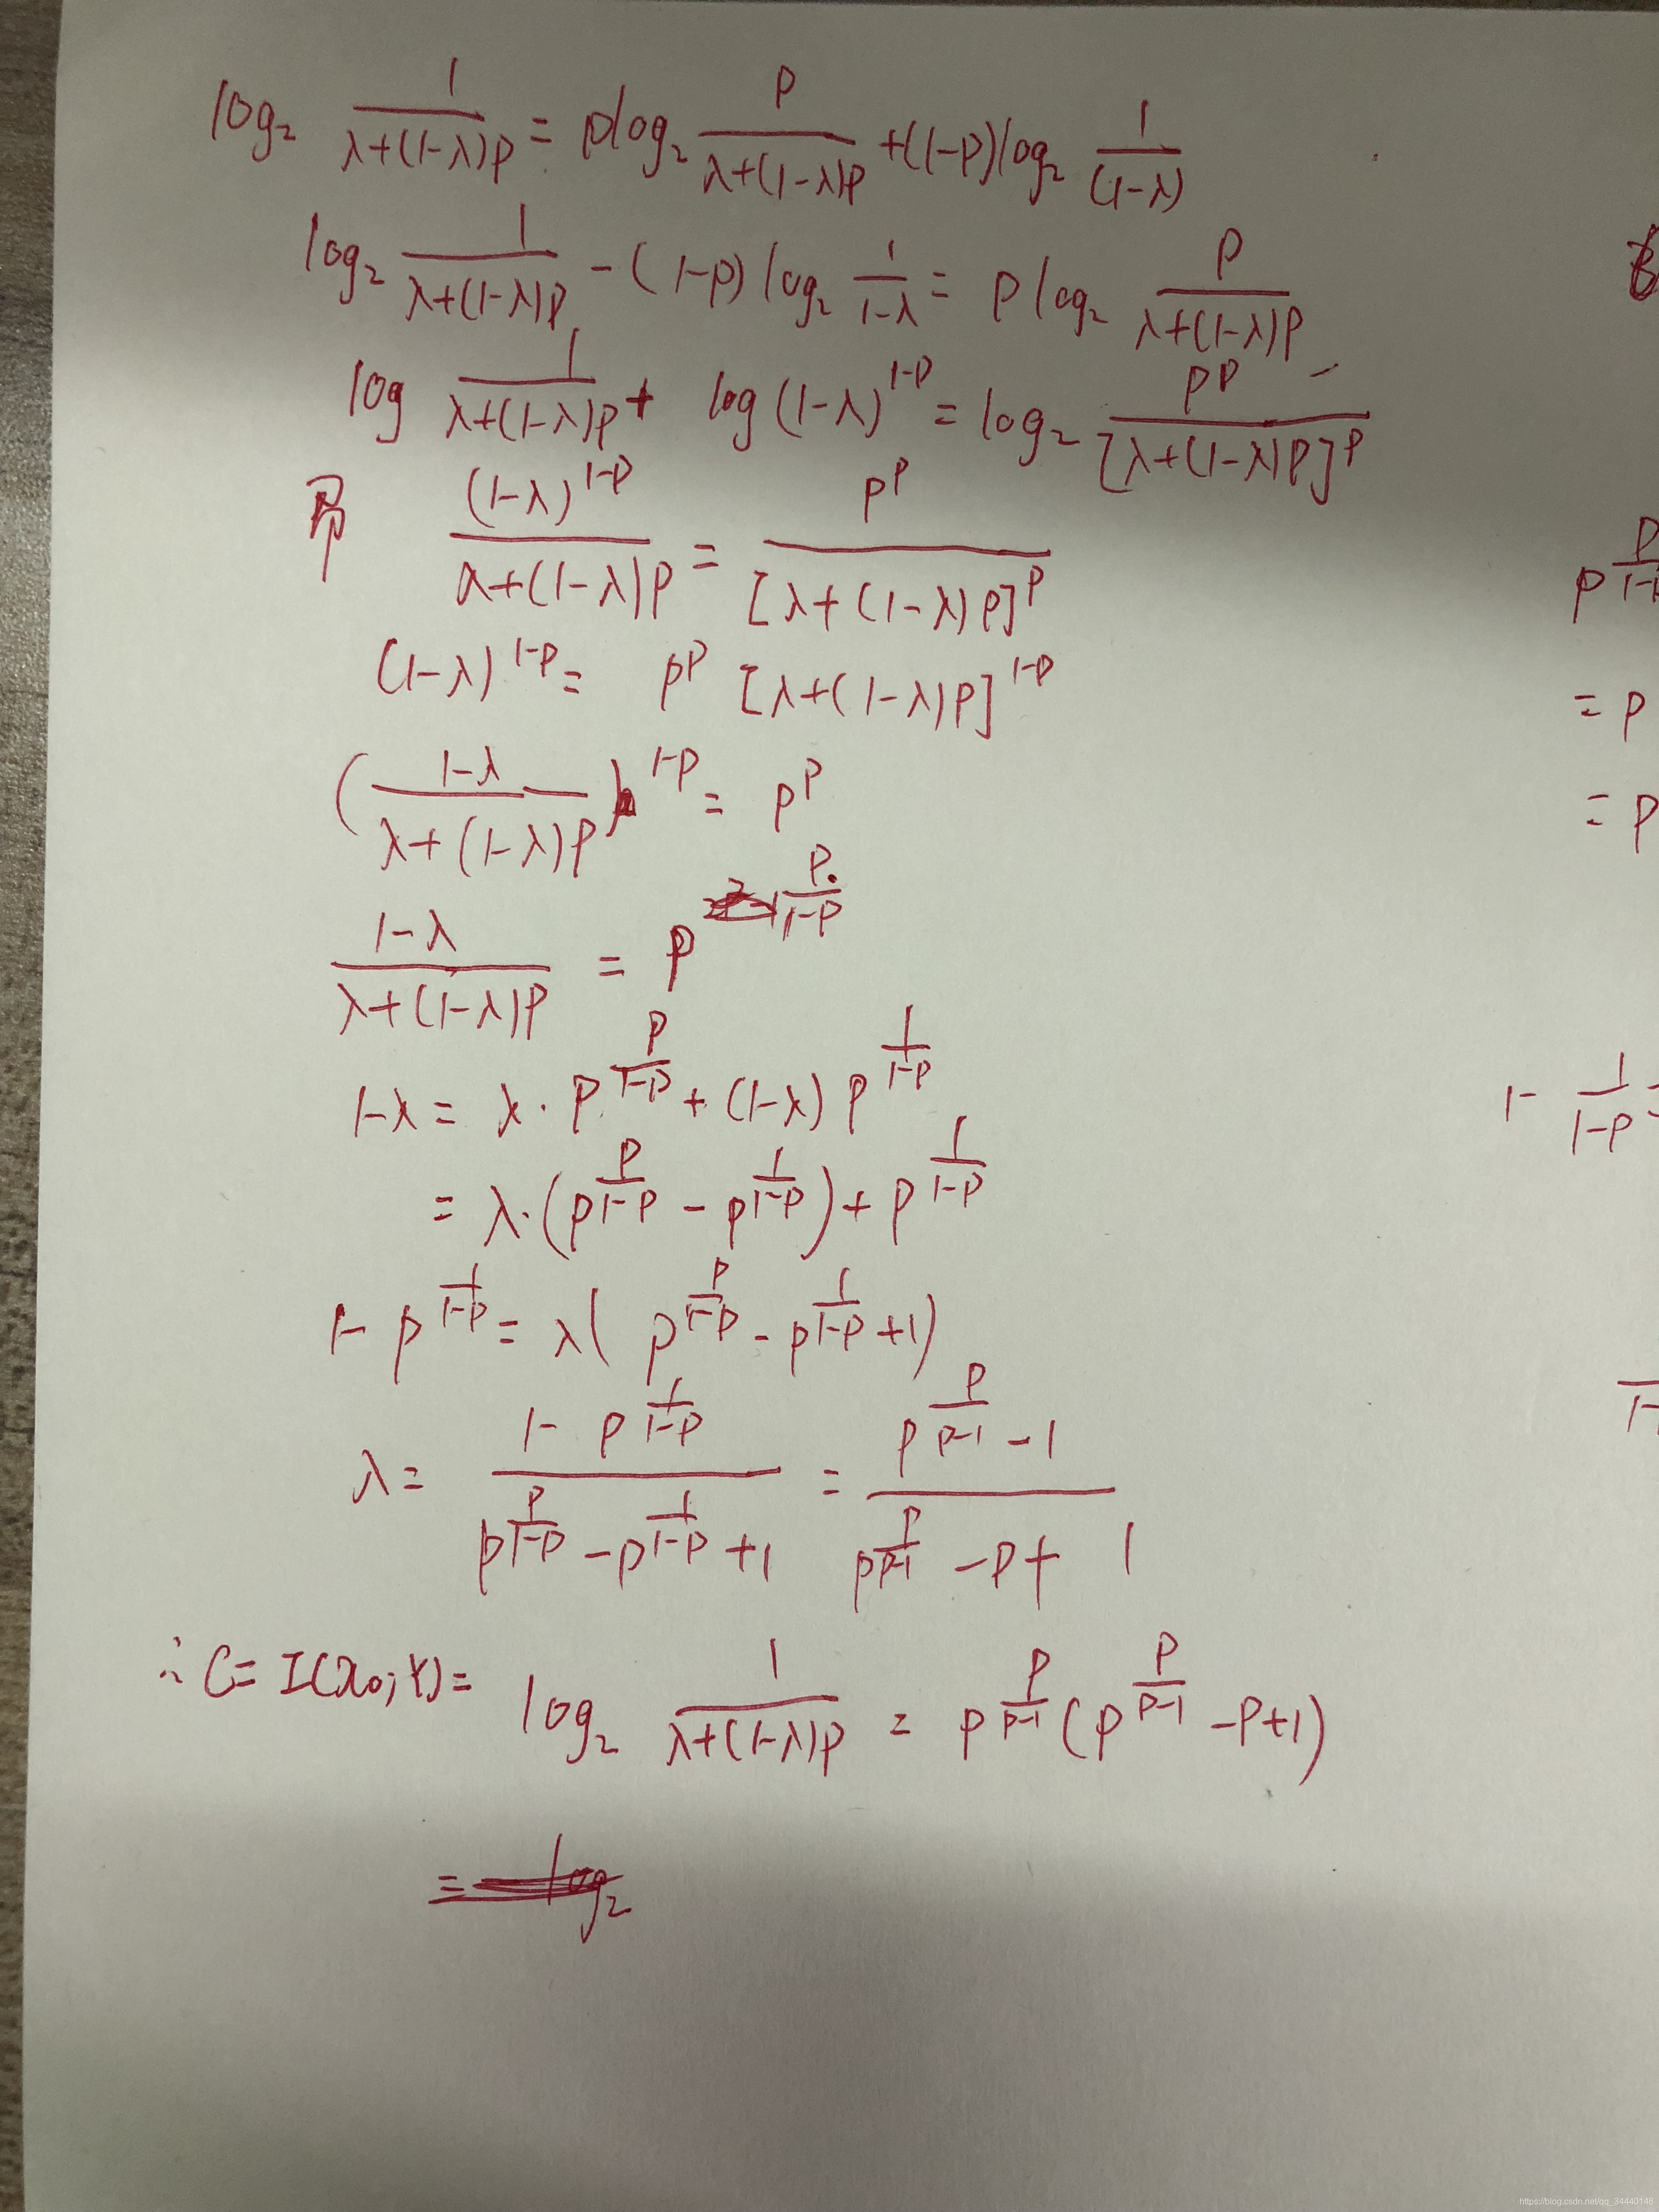 log₂ 1/(λ+(1-λ)p) = p log₂ p/(λ+(1-λ)p) + (1-p) log₂ 1/(1-λ)
log₂ 1/(λ+(1-λ)p) - (1-p) log₂ 1/(1-λ) = p log₂ p/(λ+(1-λ)p)
log 1/(λ+(1-λ)p) + log (1-λ)^(1-p) = log₂ p^p/[λ+(1-λ)p]^p
即 (1-λ)^(1-p)/(λ+(1-λ)p) = p^p/[λ+(1-λ)p]^p
(1-λ)^(1-p) = p^p [λ+(1-λ)p]^(1-p)
((1-λ)/(λ+(1-λ)p))^(1-p) = p^p
(1-λ)/(λ+(1-λ)p) = p^(p/(1-p))
1-λ = λ·p^(p/(1-p)) + (1-λ) p^(1/(1-p))
= λ·(p^(p/(1-p)) - p^(1/(1-p))) + p^(1/(1-p))
1 - p^(1/(1-p)) = λ( p^(p/(1-p)) - p^(1/(1-p)) + 1)
λ = (1 - p^(1/(1-p)))/(p^(p/(1-p)) - p^(1/(1-p)) + 1) = (p^(p/(p-1)) - 1)/(p^(p/(p-1)) - p + 1)
∴ C = I(x₀;Y) = log₂ 1/(λ+(1-λ)p) = p^(p/(p-1)) (p^(p/(p-1)) - p+1)
= log₂
= p
= p
1 - 1/(1-p)
https://blog.csdn.net/qq_34440148